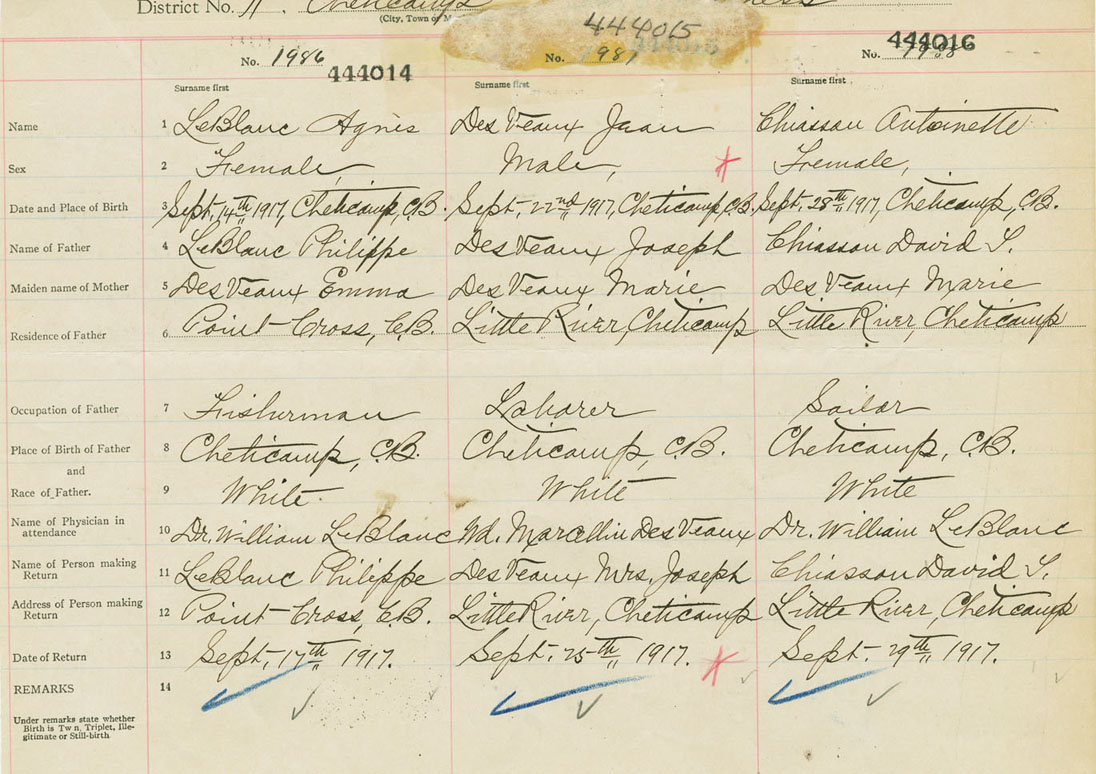 District No. 11. Cheticamp
(City, Town of
444015
No. 1986 444014 No. 1987 No. 1988 444016
Surname first Surname first Surname first
Name 1 LeBlanc Agnes DesVeaux Jean Chiasson Antoinette
Sex 2 Female, Male, Female,
Date and Place of Birth 3 Sept. 14th 1917, Cheticamp, C.B. Sept. 22nd 1917, Cheticamp, C.B. Sept. 28th 1917, Cheticamp, C.B.
Name of Father 4 LeBlanc Philippe DesVeaux Joseph Chiasson David S.
Maiden name of Mother 5 DesVeaux Emma DesVeaux Marie DesVeaux Marie
Residence of Father 6 Point Cross, C.B. Little River, Cheticamp Little River, Cheticamp
Occupation of Father 7 Fisherman Laborer Sailor
Place of Birth of Father 8 Cheticamp, C.B. Cheticamp, C.B. Cheticamp, C.B.
and
Race of Father. 9 White White White
Name of Physician in
attendance 10 Dr. William LeBlanc Wd. Marcellin DesVeaux Dr. William LeBlanc
Name of Person making
Return 11 LeBlanc Philippe DesVeaux Mrs. Joseph Chiasson David S.
Address of Person making
Return 12 Point Cross, C.B. Little River, Cheticamp Little River, Cheticamp
Date of Return 13 Sept. 17th 1917. Sept. 25th 1917. Sept. 29th 1917.
REMARKS 14
Under remarks state whether
Birth is Twn, Triplet, Ille-
gitimate or Still-birth